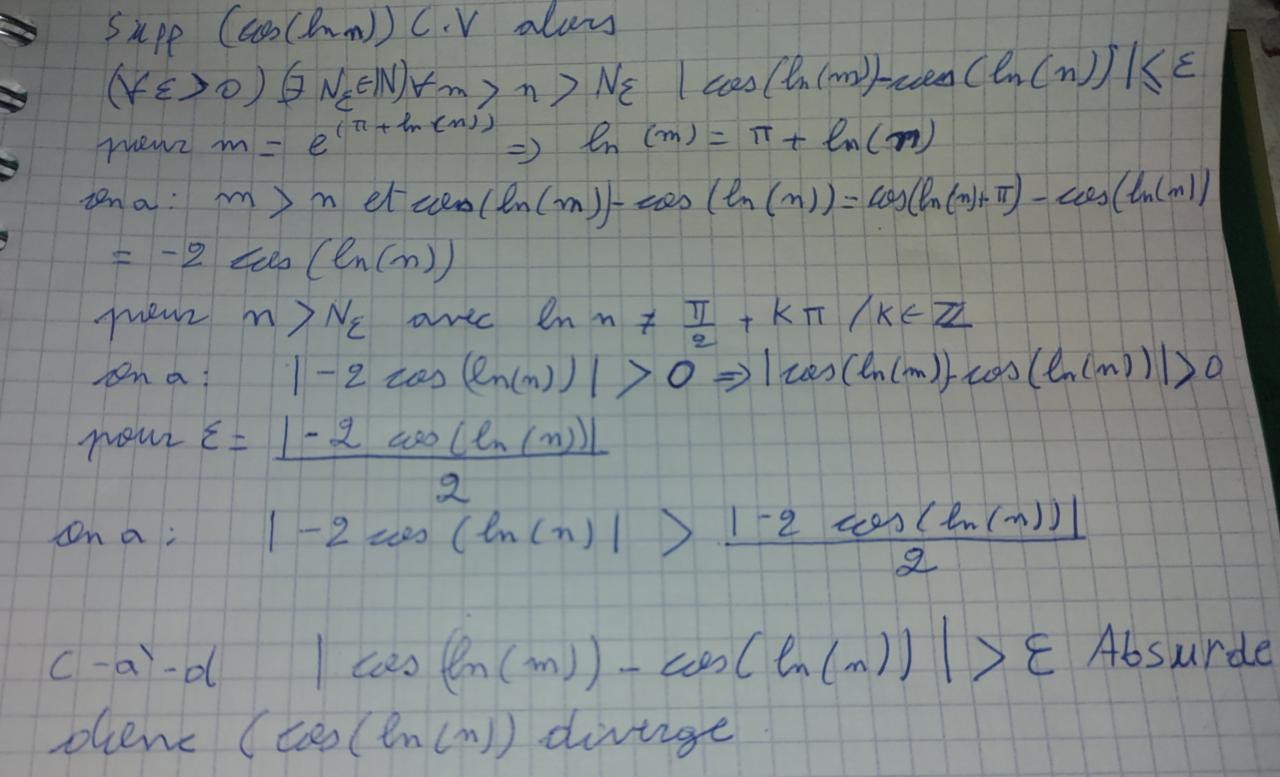 Supp (cos(ln n)) C.V alors
(∀ε>0) (∃ N_ε∈ℕ) ∀ m > n > N_ε |cos(ln(m))-cos(ln(n))| ≤ ε
pour m = e^(π+ln(n)) ⇒ ln (m) = π + ln(n)
on a: m > n et cos(ln(m))-cos(ln(n))=cos(ln(n)+π)-cos(ln(n))
= -2 cos(ln(n))
pour n > N_ε avec ln n ≠ π/2 + kπ /k∈ℤ
on a: |-2 cos(ln(n))| > 0 ⇒ |cos(ln(m))-cos(ln(n))|>0
pour ε = |-2 cos(ln(n))|/2
on a: |-2 cos(ln(n)| > |-2 cos(ln(n))|/2
c-à-d |cos(ln(m))-cos(ln(n))| > ε Absurde
donc (cos(ln(n)) diverge.